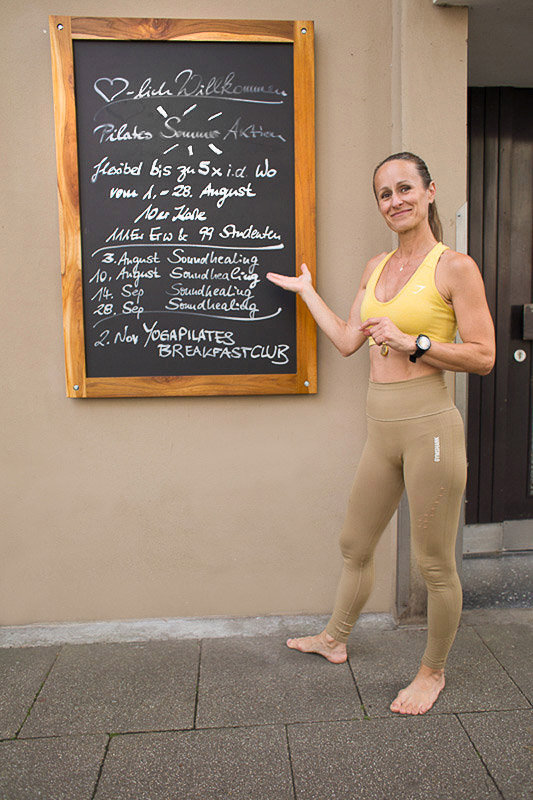 ♡-lich Willkommen
Pilates Sommer Aktion
flexibel bis zu 5x i.d. Wo
vom 1.-28. August
10er Karte
111€ Erw & 99 Studenten
3. August Soundhealing
10. August Soundhealing
14. Sep Soundhealing
28. Sep Soundhealing
2. Nov YOGAPILATES
BREAKFASTCLUB
GYMSHARK